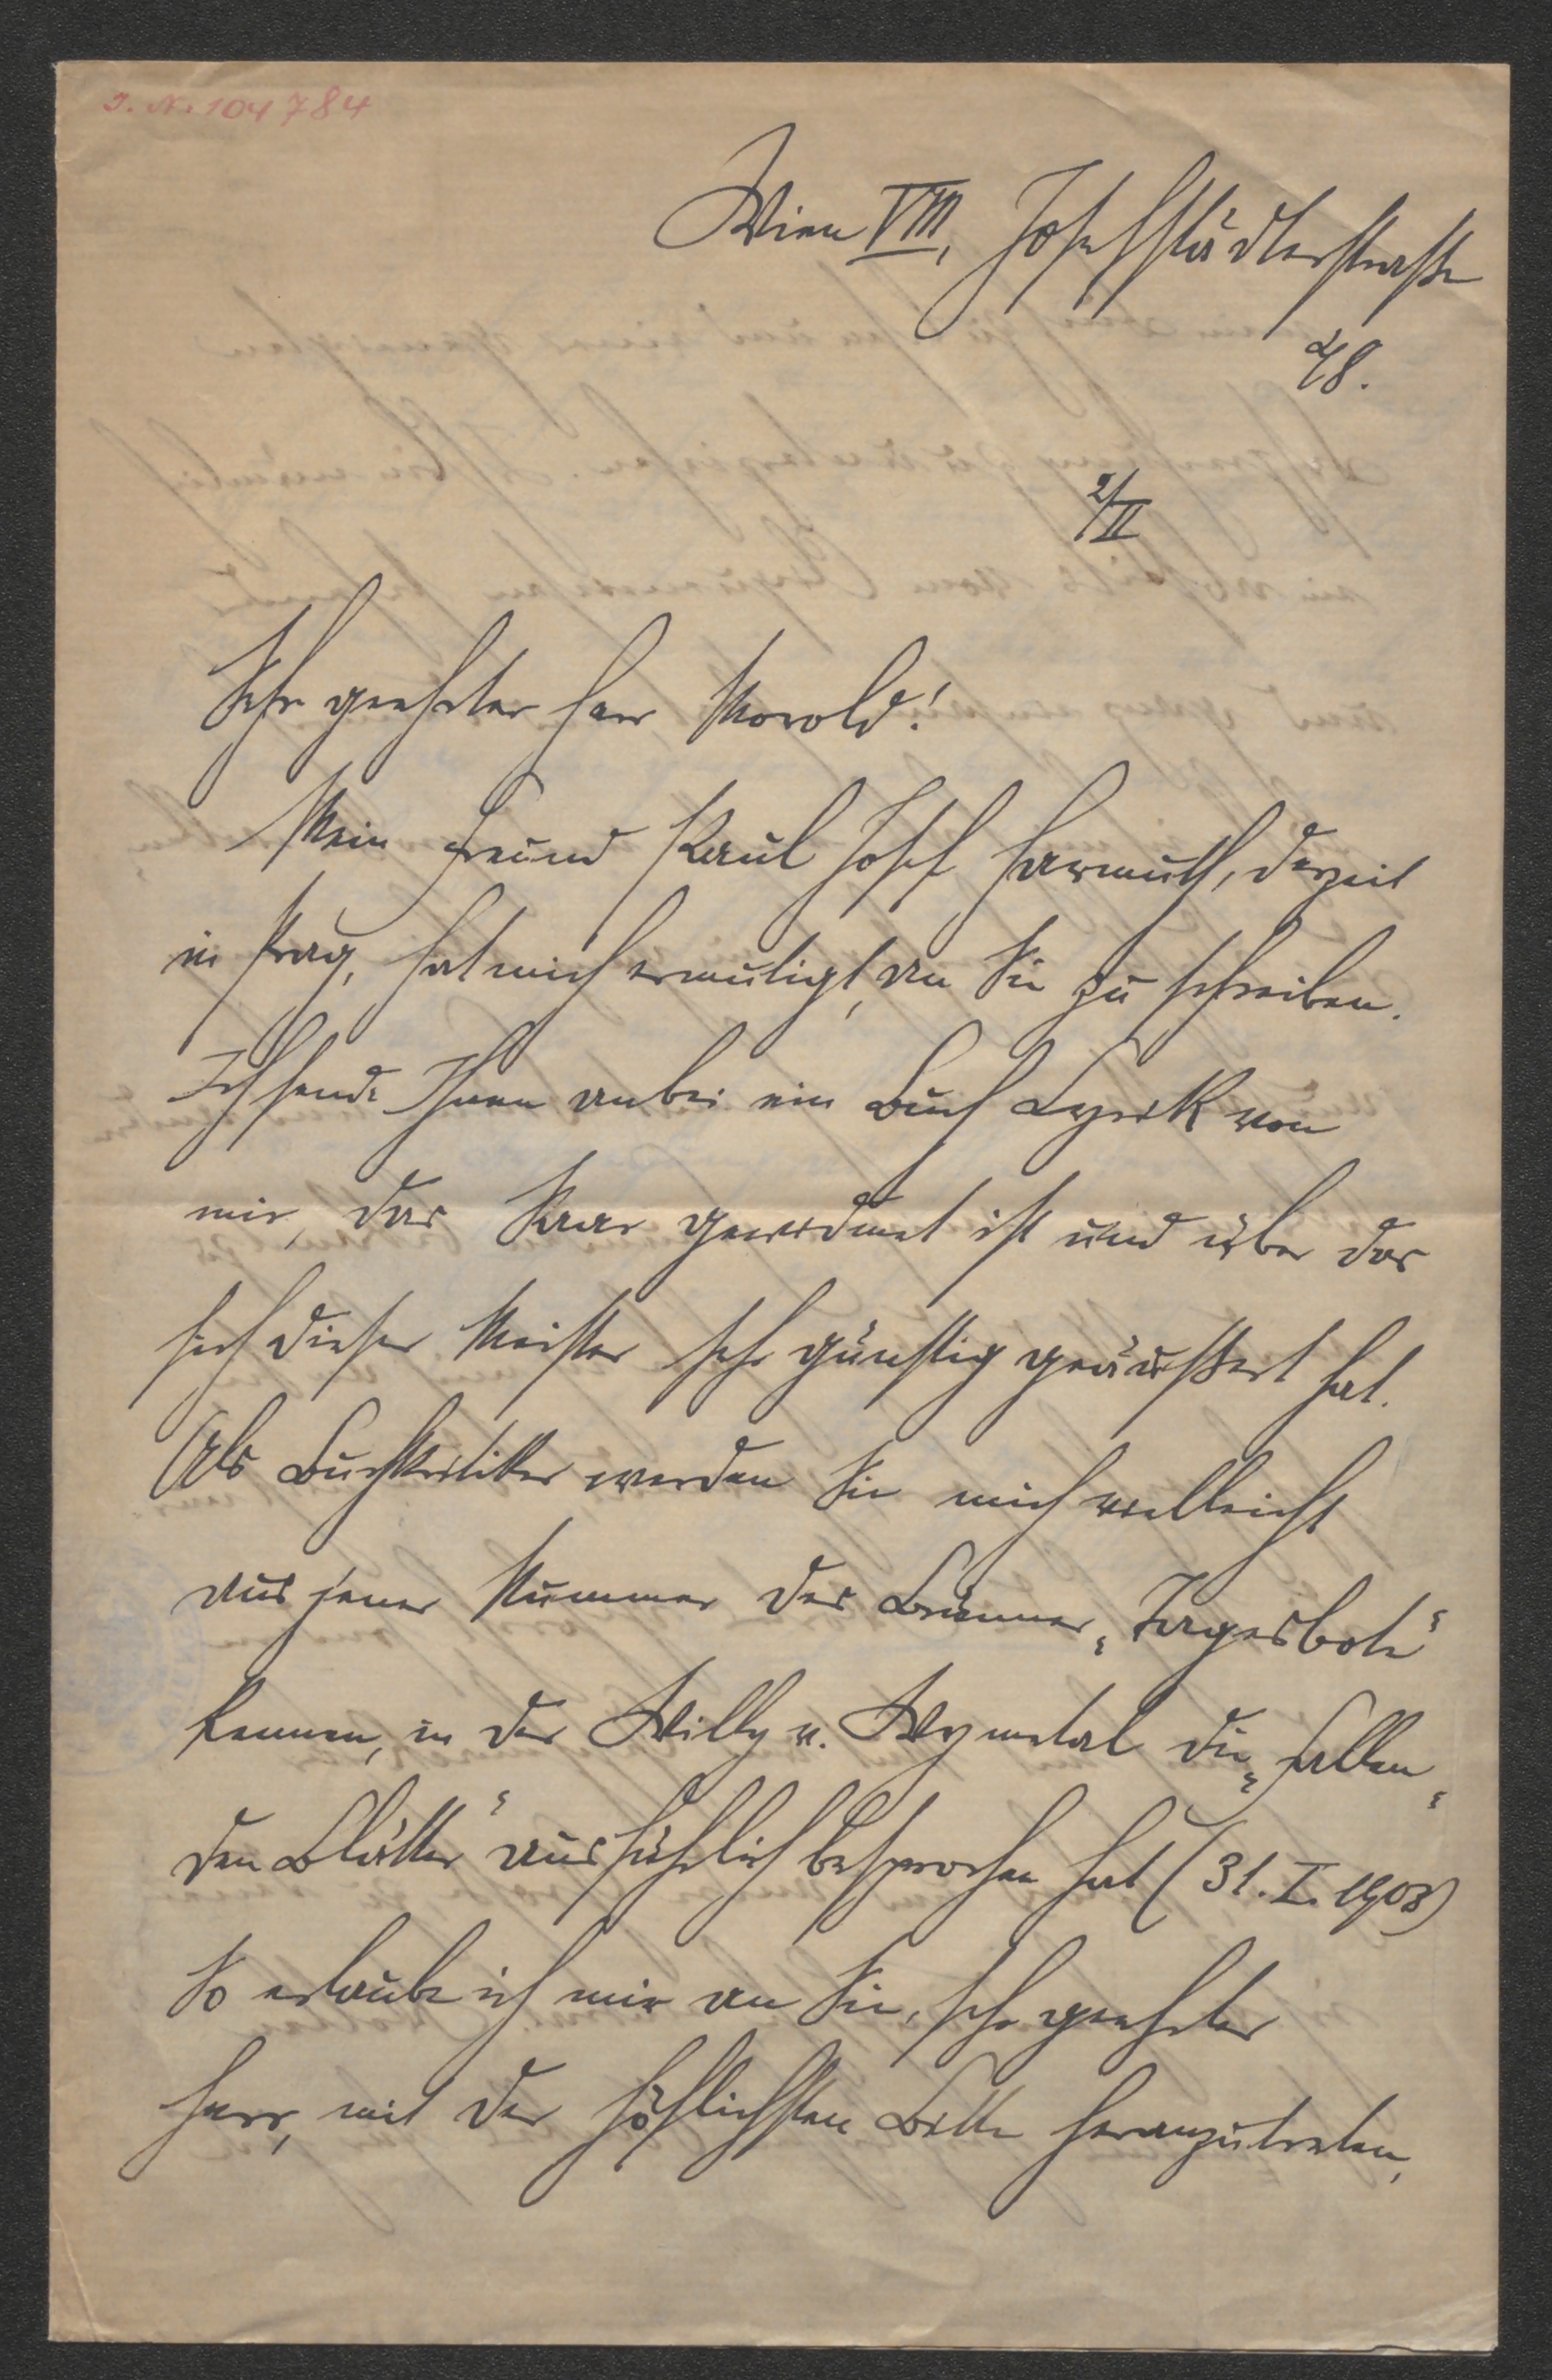 I. N. 104784
Wien VIII, Josefstädterstraße
48.
2/II
Sehr geehrter Herr Morold!
Mein Freund Paul Josef Harmuth, derzeit
in Prag, hat mich ermutigt, an Sie zu schreiben.
Ich sende Ihnen anbei ein Buch Lyrik von
mir, das Saar gewidmet ist und über das
sich dieser Meister sehr günstig geäußert hat.
Als Buchkritiker werden Sie mich vielleicht
aus jener Nummer des Brünner „Tagesbote“
kennen, in der Willy v. Wymetal die „Fallen-
den Blätter“ ausführlich besprochen hat (31. I. 1903)
So erlaube ich mir an Sie, sehr geehrter
Herr, mit der höflichsten Bitte heranzutreten,